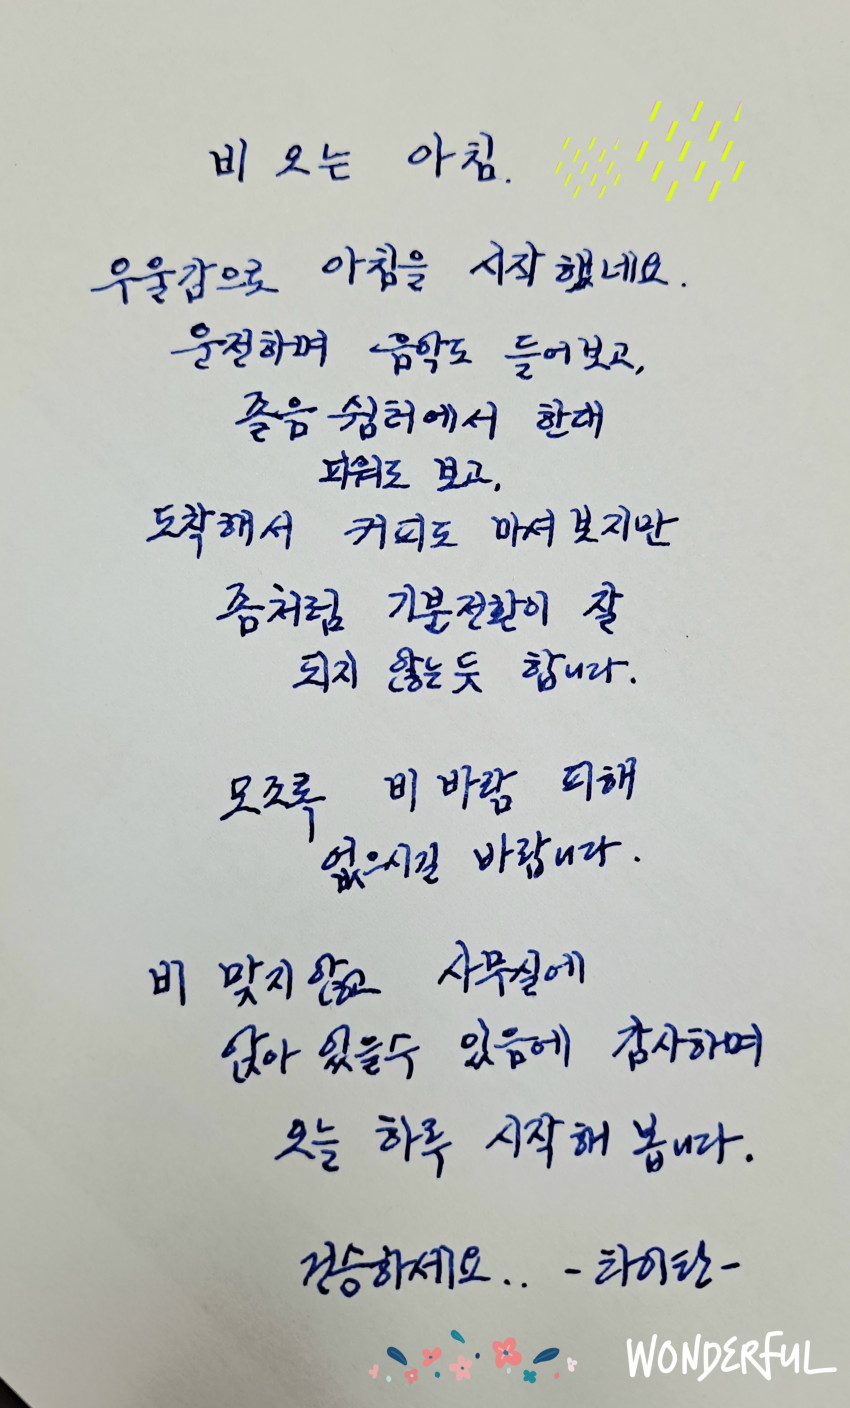 비 오는 아침.
우울감으로 아침을 시작했네요.
운전하며 음악도 들어보고,
졸음쉼터에서 한대
피워도 보고,
도착해서 커피도 마셔보지만
좀처럼 기분전환이 잘
되지 않는듯 합니다.
모조록 비 바람 피해
없으시길 바랍니다.
비 맞지않고 사무실에
앉아 있을수 있음에 감사하며
오늘 하루 시작해 봅니다.
건승하세요.. -타이탄-
WONDERFUL